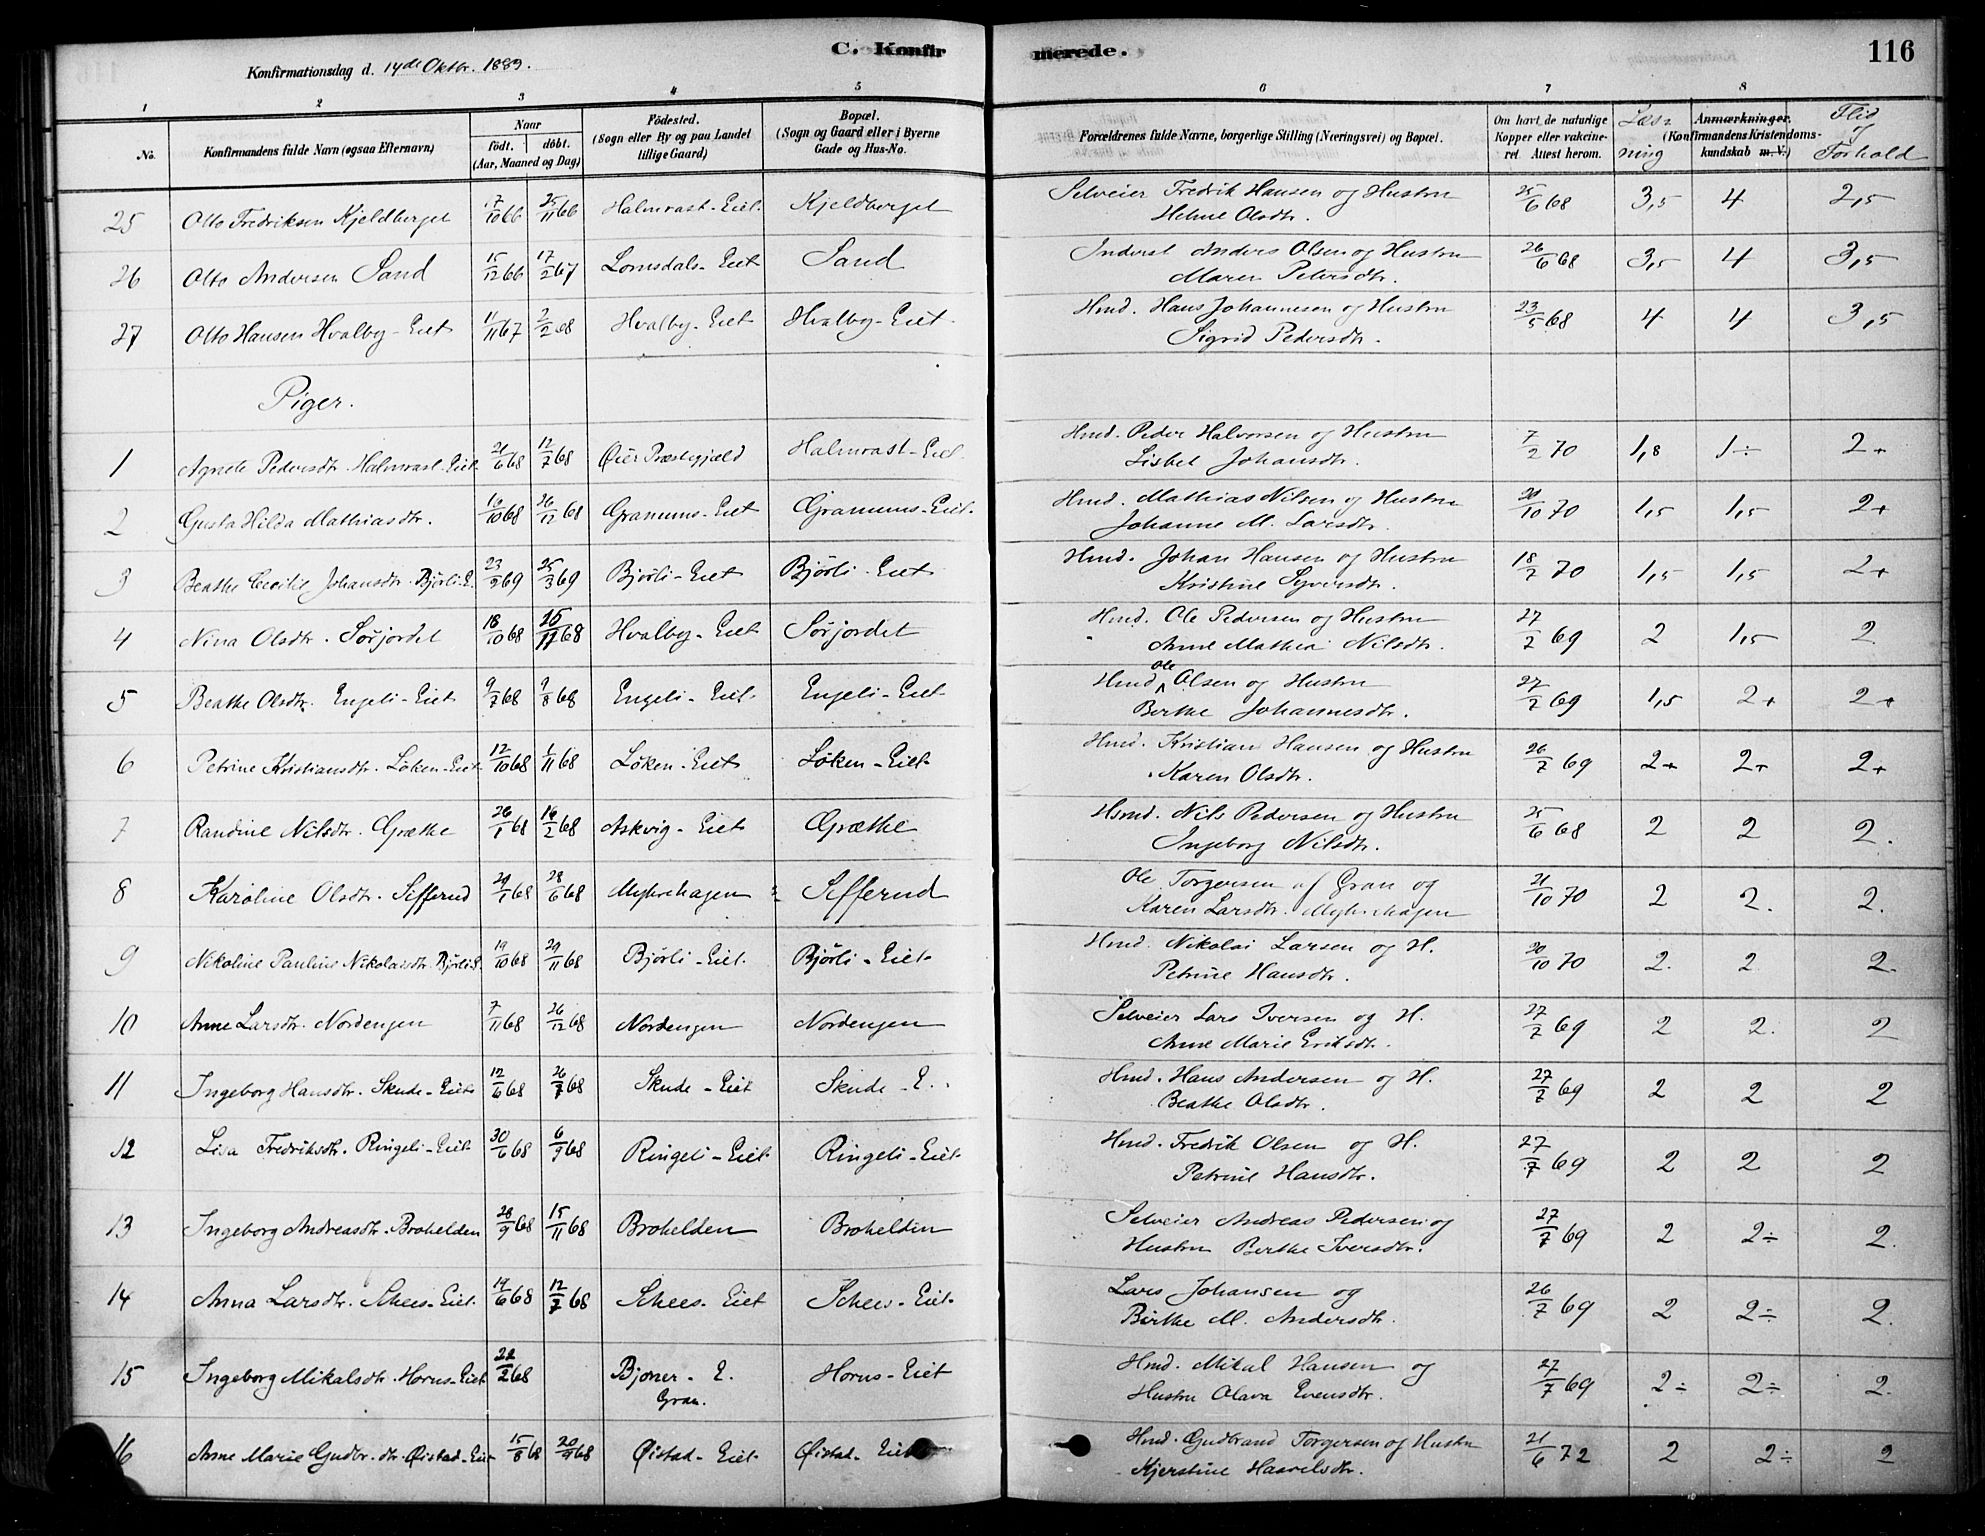 C. Konfir merede. 116
Konfirmationsdag d. 14de Oktbr. 1889.
1 2 3 4 5 6 7 8
No. Konfirmandens fulde Navn (ogsaa Efternavn) Naar født. døbt. (Aar, Maaned og Dag) Fødested. (Sogn eller By og paa Landet tillige Gaard) Bopæl. (Sogn og Gaard eller i Byerne Gade og Hus-No. Forældrenes fulde Navne, borgerlige Stilling (Næringsvei) og Bopæl. Om havt de naturlige Kopper eller vakcineret. Attest herom. Læsning Anmærkninger. (Konfirmandens Kristendomskundskab m.V.) Flid og Forhold
25 Otto Fredriksen Kjeldberget 17/10 66 25/11 66 Halmrast-Eiet. Kjeldberget Selveier Fredrik Hansen og Hustru 25/6 68 3,5 4 2,5
Helene Olsdtr.
26 Otto Andersen Sand 15/12 66 17/2 67 Lomsdals-Eiet Sand Inderst Anders Olsen og Hustru 26/6 68 3,5 4 3,5
Maren Petersdtr.
27 Otto Hansen Hvalby-Eiet 11/11 67 2/2 68 Hvalby-Eiet Hvalby-Eiet Hmd. Hans Johannesen og Hustru 23/5 68 4 4 3,5
Sigrid Pedersdtr.
Piger.
1 Agnete Pedersdtr. Halmrast-Eiet 21/6 68 12/7 68 Øier Præstegjæld Halmrast-Eiet Hmd. Peder Halvorsen og Hustru 7/2 70 1,8 1÷ 2+
Lisbet Johansdtr.
2 Gusta Hilda Mathiasdtr. 16/10 68 26/12 68 Gramums-Eiet Gramums-Eiet. Hmd. Mathias Nilsen og Hustru 20/10 70 1,5 1,5 2+
Johanne M. Larsdtr.
3 Beathe Cecilie Johansdtr. Bjørli E. 23/2 69 25/3 69 Bjørli-Eiet Bjørli-Eiet Hmd. Johan Hansen og Hustru 18/7 70 1,5 1,5 2+
Kristine Syversdtr.
4 Nina Olsdtr. Sørjordet 18/10 68 15/11 68 Hvalby-Eiet Sørjordet Hmd. Ole Pedersen og Hustru 27/2 69 2 1,5 2
Anne Mathea Nilsdtr.
5 Beathe Olsdtr. Engeli-Eiet 9/7 68 9/8 68 Engeli-Eiet Engeli-Eiet Hmd Ole Olsen og Hustru 27/7 69 1,5 2+ 2+
Berthe Johannesdtr.
6 Petrine Kristiansdtr. Løken-Eiet 12/10 68 1/11 68 Løken-Eiet Løken-Eiet Hmd. Kristian Hansen og Hustru 26/7 69 2+ 2+ 2+
Karen Olsdtr.
7 Randine Nilsdtr. Græthe 26/1 68 16/2 68 Askvig-Eiet Græthe Hsmd. Nils Pedersen og Hustru 25/6 68 2 2 2.
Ingeborg Nilsdtr.
8 Karoline Olsdtr. Sefferud 29/1 68 28/6 68 Myhrehagen Sefferud Ole Torgersen af Gran og 21/10 70 2 2. 2.
Karen Larsdtr. Myhrehagen
9 Nikoline Pauline Nikolaisdtr. Bjørli E. 19/10 68 29/11 68 Bjørli-Eiet. Bjørli-Eiet Hmd. Nikolai Larsen og H. 20/10 70 2. 2 2.
Petrine Hansdtr.
10 Anne Larsdtr. Nordengen 7/11 68 26/12 68 Nordengen Nordengen Selveier Lars Iversen og H. 27/7 69 2 2. 2
Anne Marie Eriksdtr.
11 Ingeborg Hansdtr. Skude-Eiet 12/6 68 26/7 68 Skude-Eiet Skude-E. Hmd. Hans Andersen og H. 27/7 69 2 2 2
Beathe Olsdtr.
12 Lisa Fredriksdtr. Ringeli-Eiet 30/6 68 6/9 68 Ringeli-Eiet Ringeli-Eiet Hmd. Fredrik Olsen og H. 27/7 69 2 2 2
Petrine Hansdtr.
13 Ingeborg Andreasdtr. Brohelden 28/9 68 15/11 68 Brohelden Brohelden Selveier Andreas Pedersen og 27/7 69 2 2÷ 2.
Hustru Berthe Iversdtr.
14 Anna Larsdtr. Schees-Eiet. 14/6 68 12/7 68 Schees-Eiet Schees-Eiet Lars Johansen og 26/7 69 2 2÷ 2.
Berthe M. Andersdtr.
15 Ingeborg Mikalsdtr. Horns-Eiet 22/2 68 Bjoner-E. Gran. Horns-Eiet Hmd. Mikal Hansen og 27/7 69 2÷ 2÷ 2.
Hustru Olava Evensdtr.
16 Anne Marie Gudbr.dtr. Øistad-Eiet 15/8 68 20/9 68 Øistad-Eiet. Øistad-Eiet Hmd. Gudbrand Torgersen og Hustru 21/6 72 2 2÷ 2
Kjerstine Haavelsdtr.